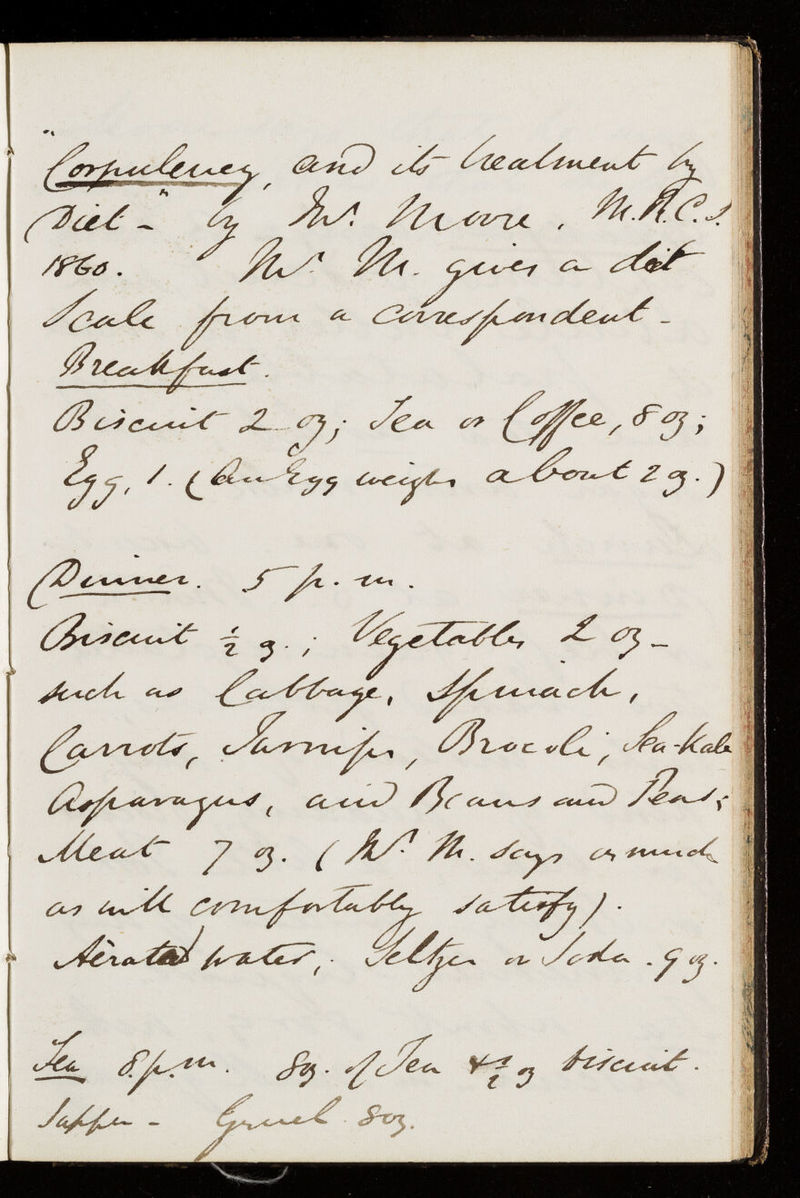 "Corpulency, and its treatment by
Diet-" by Mr. Moore. M.R.C.S.
1860. Mr. M. gives a diet
Scale from a correspondent -
Breakfast.
Biscuit 2 oz; Tea or Coffee, 8 oz;
Egg, 1. (An Egg weighs about 2 oz.)
Dinner. 5 p.m.
Biscuit ½ oz.; Vegetables 2 oz -
such as Cabbage, Spinach,
Carrots, Turnips, Brocoli, Sea-Kale
Asparagus, and Beans and Peas;
Meat 7 oz. (Mr. M. says as much
as will comfortably satisfy).
Aërated water, Seltzer or Soda. 9 oz.
Tea 8.p.m. 8oz. of Tea & ½ oz biscuit.
Supper - Gruel 8oz.